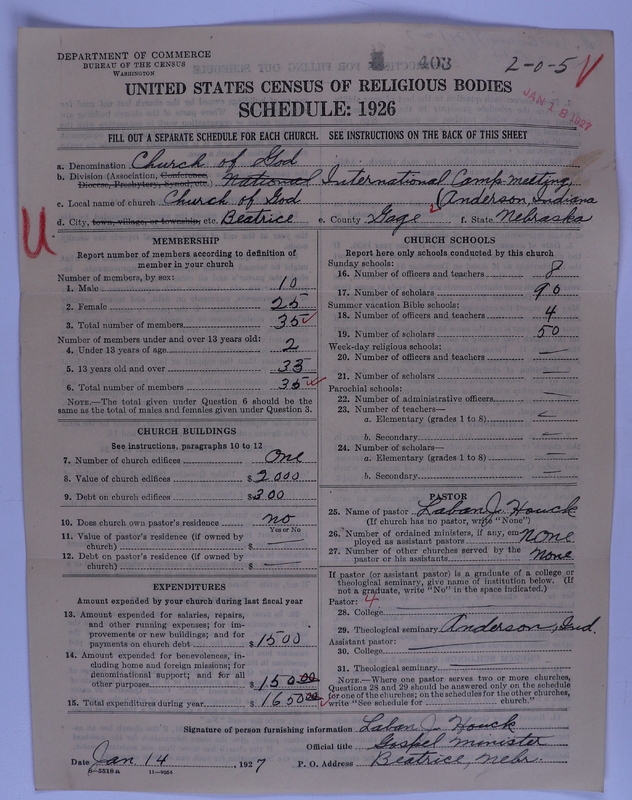 DEPARTMENT OF COMMERCE
BUREAU OF THE CENSUS
WASHINGTON
403
2-0-5
JAN 18 1927
UNITED STATES CENSUS OF RELIGIOUS BODIES
SCHEDULE: 1926
FILL OUT A SEPARATE SCHEDULE FOR EACH CHURCH. SEE INSTRUCTIONS ON THE BACK OF THIS SHEET
a. Denomination Church of God
b. Division (Association, Conference, Diocese, Presbytery, Synod, etc.) National International Camp meeting,
Anderson, Indiana
c. Local name of church Church of God
d. City, town, village, or township, etc. Beatrice e. County Gage f. State Nebraska
U
MEMBERSHIP
Report number of members according to definition of member in your church
Number of members, by sex:
1. Male 10
2. Female 25
3. Total number of members 35
Number of members under and over 13 years old:
4. Under 13 years of age 2
5. 13 years old and over 33
6. Total number of members 35
NOTE.—The total given under Question 6 should be the same as the total of males and females given under Question 3.
CHURCH BUILDINGS
See instructions, paragraphs 10 to 12
7. Number of church edifices One
8. Value of church edifices $2000
9. Debt on church edifices $300
10. Does church own pastor's residence no
Yes or No
11. Value of pastor's residence (if owned by church) $ —
12. Debt on pastor's residence (if owned by church) $ —
EXPENDITURES
Amount expended by your church during last fiscal year
13. Amount expended for salaries, repairs, and other running expenses; for improvements or new buildings; and for payments on church debt $1500
14. Amount expended for benevolences, including home and foreign missions; for denominational support; and for all other purposes $150.00
15. Total expenditures during year $1650.00
CHURCH SCHOOLS
Report here only schools conducted by this church
Sunday schools:
16. Number of officers and teachers 8
17. Number of scholars 90
Summer vacation Bible schools:
18. Number of officers and teachers 4
19. Number of scholars 50
Week-day religious schools:
20. Number of officers and teachers —
21. Number of scholars —
Parochial schools:
22. Number of administrative officers —
23. Number of teachers—
a. Elementary (grades 1 to 8) —
b. Secondary —
24. Number of scholars—
a. Elementary (grades 1 to 8) —
b. Secondary —
PASTOR
25. Name of pastor Laban J. Houck
(If church has no pastor, write "None")
26. Number of ordained ministers, if any, employed as assistant pastors none
27. Number of other churches served by the pastor or his assistants none
If pastor (or assistant pastor) is a graduate of a college or theological seminary, give name of institution below. (If not a graduate, write "No" in the space indicated.)
Pastor: 4
28. College
29. Theological seminary Anderson, Ind.
Assistant pastor:
30. College
31. Theological seminary
NOTE.—Where one pastor serves two or more churches, Questions 28 and 29 should be answered only on the schedule for one of the churches; on the schedules for the other churches, write "See schedule for church."
Signature of person furnishing information Laban J. Houck
Official title Gospel minister
Date Jan 14, 1927 P. O. Address Beatrice, Nebr.
8-5518a 11-9054